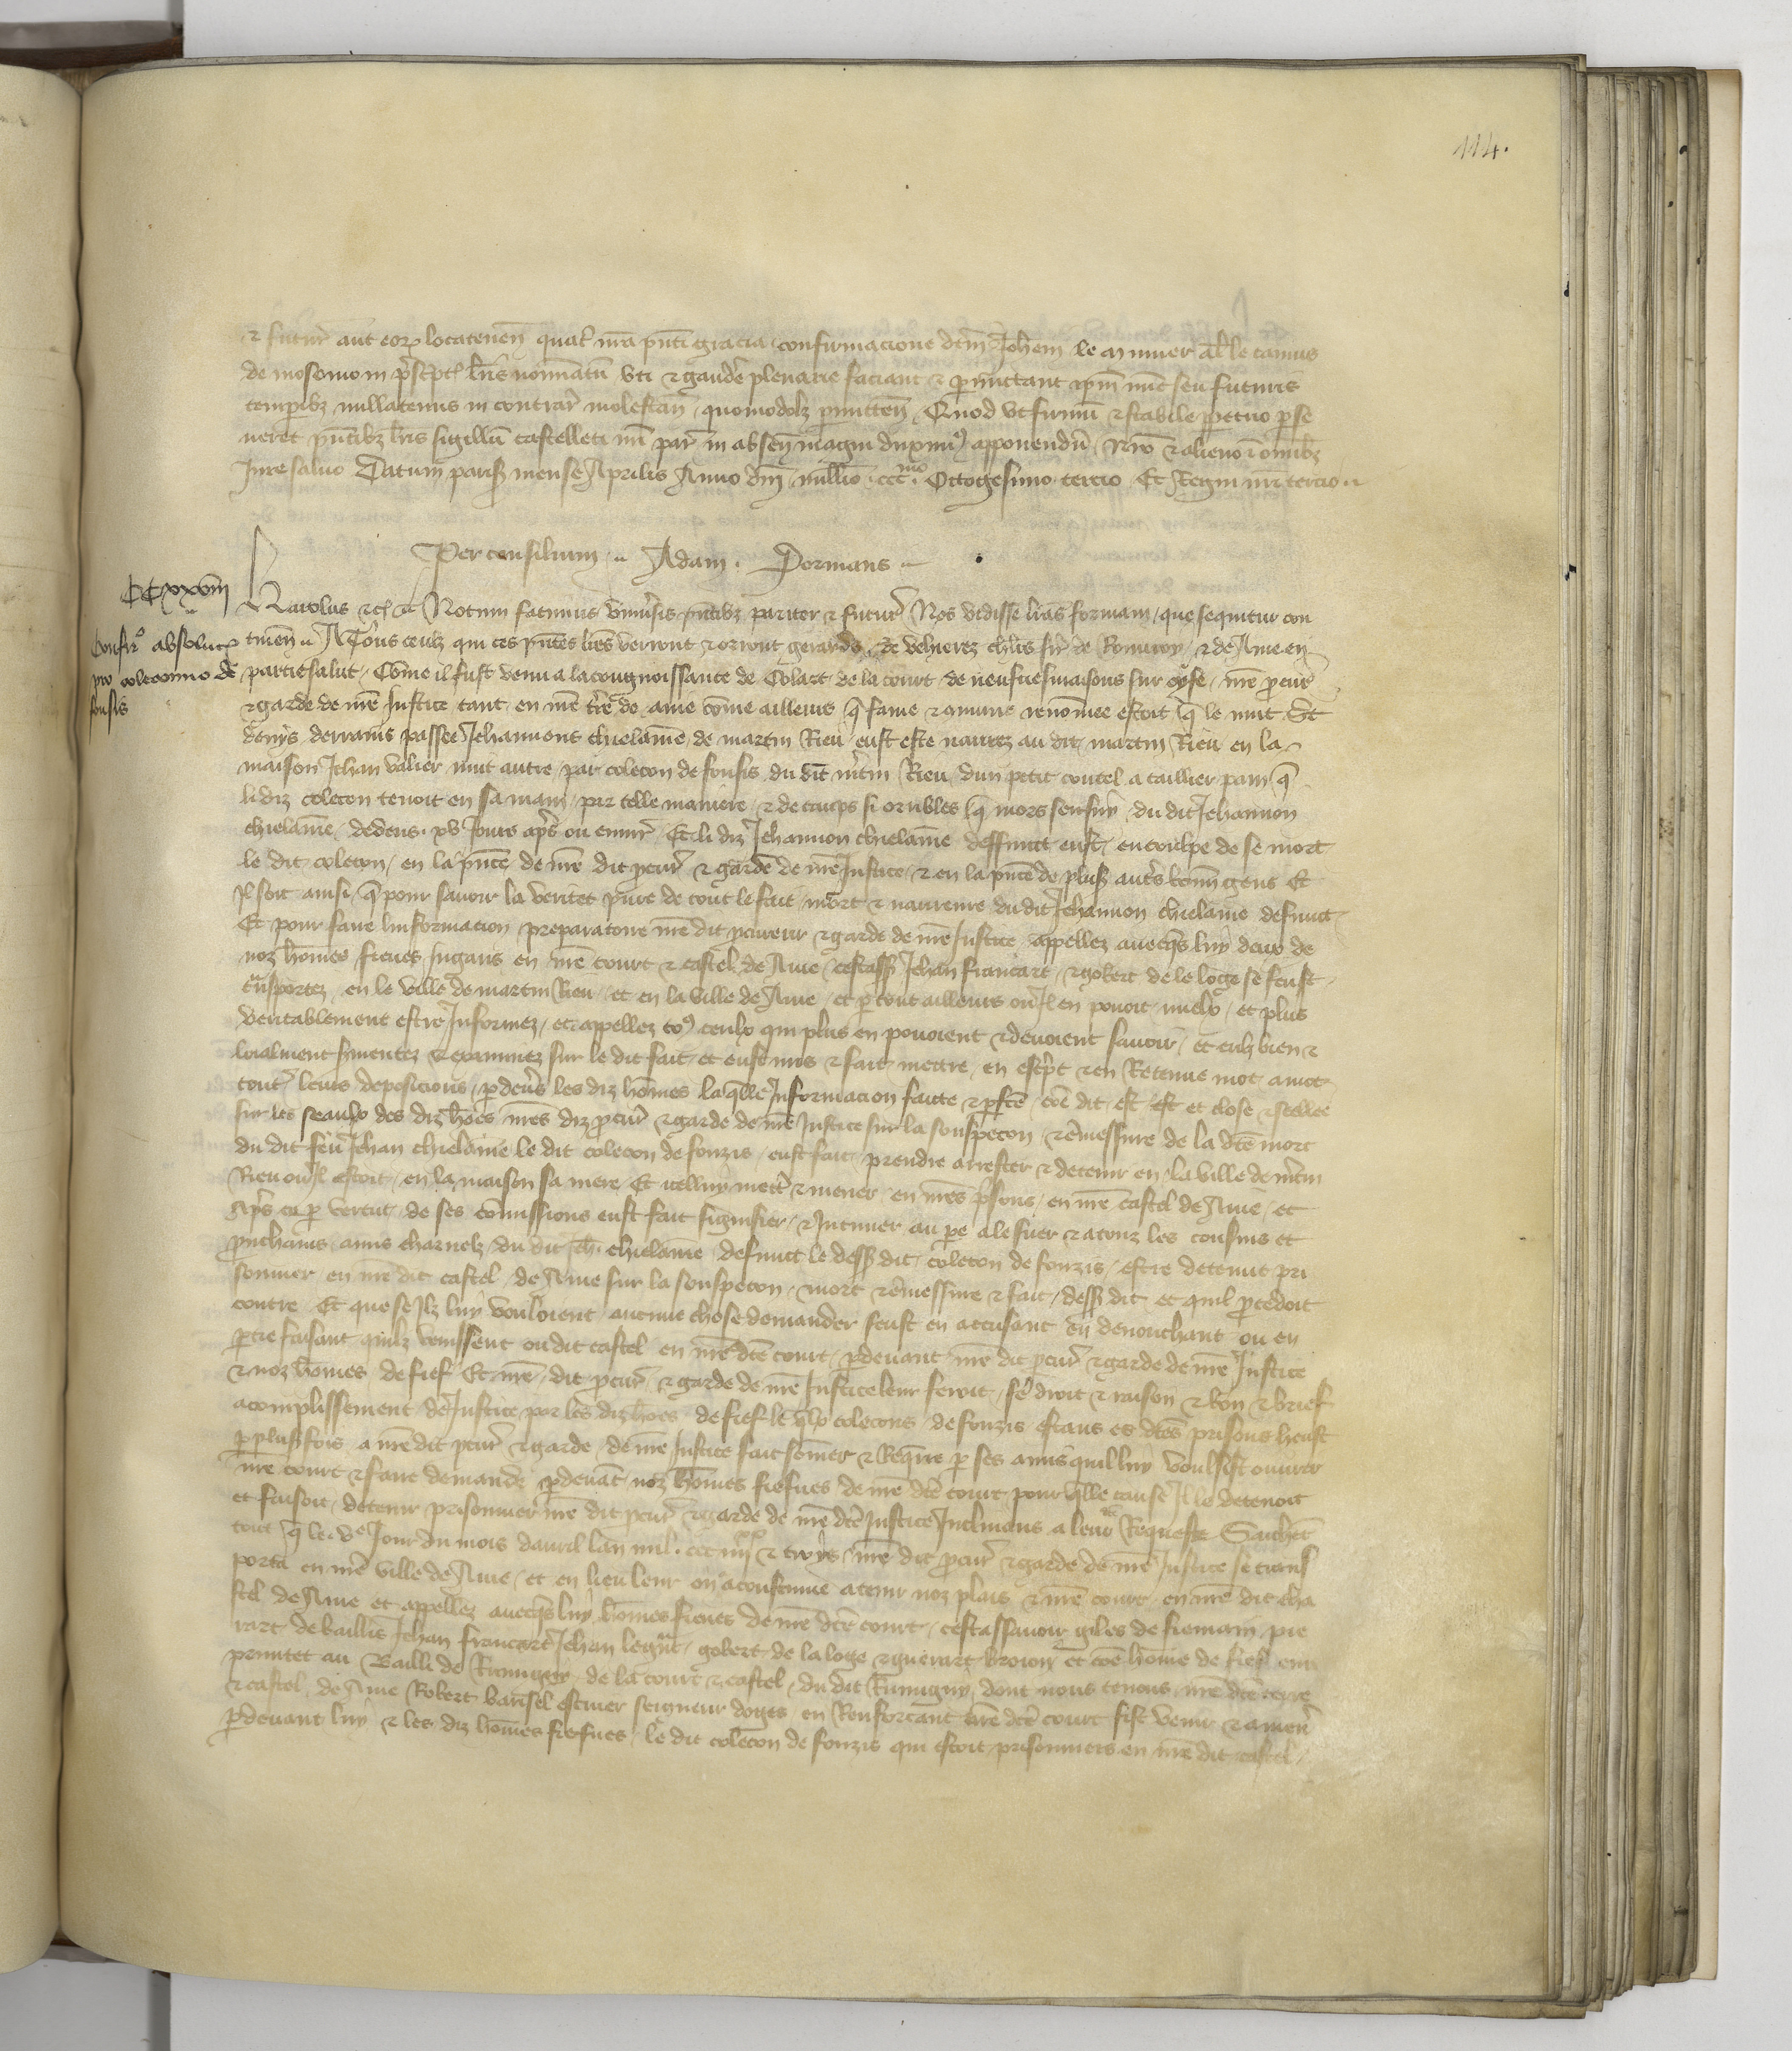 114.
& futur aut eorum locatenen qual nra pnti gracia & confirmacione dcm Johem le annuer al le camus
de mosomo in prescptis lris nominatu uti & gaudere plenarie faciant & permittant ipm nuc seu futuris
temporibz nullatenus in contrar molestan quomodolz permitten Quod ut firmu & stabile perpetuo perse
veret pntibz lris sigillu castelleti nri par in absen magni duximus apponendu Nro & alieno i omibz
Jure salvo Datum parisius mense Aprilis Anno dni millio ccc.mo Octogesimo tercio Et Regni nri tercio
Per consilium Adam. Dormans
CCxxviii
Karolus &c Notum facimus universis pntibz pariter & futur Nos vidisse lras formam que sequitur con
Confirmo absolut
tinen A Tous ceulz qui ces pntes lres verront & orront gerards de vehierez chlrs sir de Romroy & de Aine en
pro coleconno de
partie salut Come il fust venu a la cougnoissance de Colart de la court de neufuesmaisons sur oyse, nre procur
fonsis
& garde de nre Justice tant en nre tre de aine come ailleurs q fame & comune renomee estoit q le nuit St
denys derrains passee Jehannont chielame de martin Rieu eust este navrez au dit martin Rieu en la
maison Jehan valier nuit autre par colecon de fonsis du dit mrtin Rieu dun petit coutel a taillier pain q
li diz colecon tenoit en sa main par telle maniere & de coups si orribles q mors sensuy du dit Jehannon
chielame dedens xv Jours apres ou envir Et li diz Jehannon chielame deffunct eust encoulpe de se mort
le dit colecon en la pnce de nre dit pcur & garde de nre Justice & en la pnce de plus autres bonn gens Et
Il soit ainsi q pour savoir la veritet pure de tout le fait mort & navreure du dit Jehannon chielame defunct
Et pour faire linformacion preparatoire nre dit pcureur & garde de nre Justice appellez avecqs luy deux de
noz homes fieues Jugans en nre court & castel de Aine cestass Jehan francart & gobert de le loge se feust
trsportez en le ville de martin Rieu et en la ville de Aine et p tout ailleurs ou Il en povoit mielx et plus
veritablement estre Informez et appellez tous ceulx qui plus en povoient & devoient savoir et eulz bien &
loialment srmentez & examinez sur le dit fait et eust mis & fait mettre en escpt & en Retenue mot a mot
tout leurs deposicions pdevs les diz homes la qlle Informacion faitte & pfcte come dit est et close & seellee
sur les seaulx des diz hoes nres diz procur & garde de nre Justice sur la souspecon & emessure de la dte mort
du dit feu Jehan chielame le dit colecon de fonzis eust fait prendre arrester & detenir en la ville de mrtin
Rieu ou Il estoit en la maison sa mere Et icelluy mett & mener en nres prisons en nre castel de Aine et
Apres en p vertut de ses comissions eust fait signifier & Intimer au pe a le suer & a touz les cousins et
princhains amis charnelz du dit Jeh. chielame defunct le dess dit colecon de fonzis estre detenut pri
sonnier en nre dit castel de Aine sur la souspecon mort & emessure & fait dess dit et quil procedoit
contre Et que se Ilz luy vouloient aucune chose demander feust en accusant en denonchant ou en
ptie faisant quilz venissent ou dit castel en nre dte court pdevant nre dit pcur & garde de nre Justice
& noz homes de fief Et nre dit procur & garde de nre Justice leur feroit fe droit & raison & bon & brief
acomplissement de Justice par les diz hoes de fief le qlx colecons de fonzis estans es dtes prisons heust
p plus fois a nre dit pcur & garde de nre Justice fait somer & Requerre p ses amis quil luy voulsist ouvrir
nre court & faire demande pdevat noz homes fiefues de nre dte court pour qlle cause Il le detenoit
et faisoit detenir prisonnier nre dit pcur & garde de nre dte Justice Inclinans a leur Requeste Sachent
tout q le .ve Jour du mois davril lan mil ccc iiiixx & troys nre dit pcur & garde de nre Justice se trans
porta en nre ville de Aine et en lieu leur on acoustume a tenir noz plais & nre court en nre dit cha
stel de Aine et appellez avecqs luy homes fieues de nre dte court cestassavoir giles de fiemain pie
rart de baillis Jehan francart Jehan legrat gobert de la loge & guerart broion et coe home de fief em
pruntet au Bailli de Rumigny de la court & castel du dit Rumigny dont nous tenons nre dte terre
& castel de Aine Robert barisel escuier seigneur doges en Renforcant nre dte court fist venir & amen
pdevant luy & les diz homes fiefues le dit colecon de fonzis qui estoit prisonniers en nre dit castel